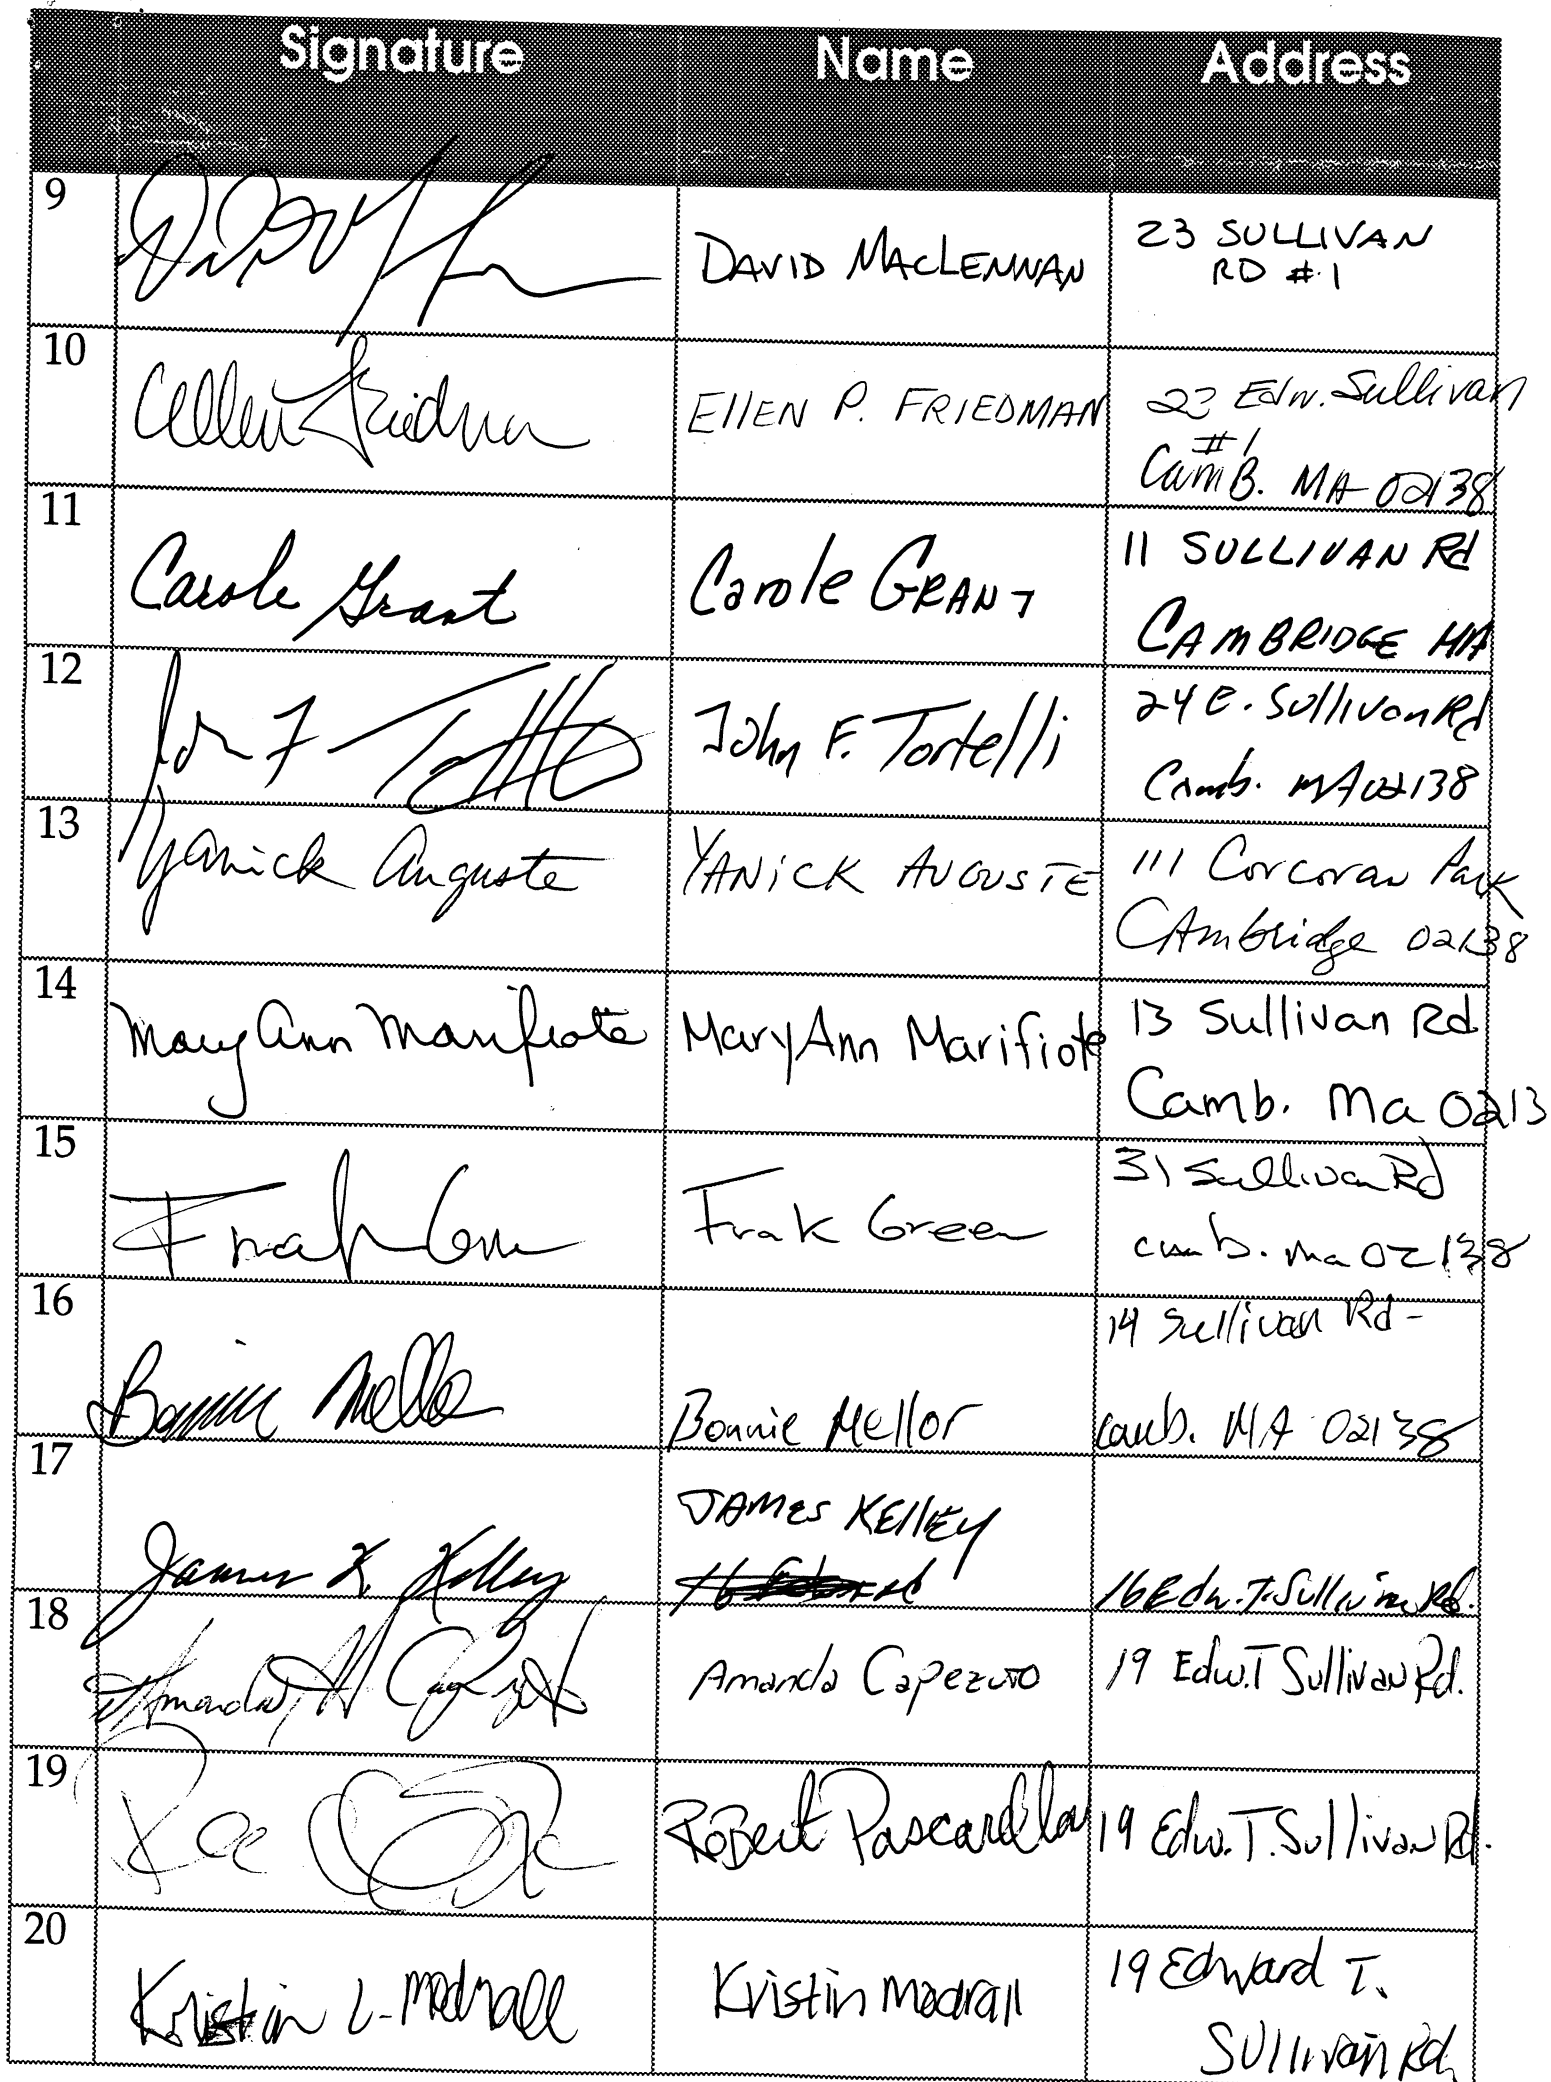 Signature Name Address
9 DAVID MACLENNAN 23 SULLIVAN
RD #1
10 Ellen Friedman EllEN P. FRIEDMAN 23 Edw. Sullivan
#1
CamB. MA 02138
11 Carole Grant Carole GRANT 11 SULLIVAN Rd
CAMBRIDGE MA
12 John F. Tortelli 24 E. Sullivan Rd
Camb. MA 02138
13 Yanick Auguste YANiCK AUGUSTE 111 Corcoran Park
CAmbridge 02138
14 Mary Ann Marifiote MaryAnn Marifiote 13 Sullivan Rd
Camb. Ma 0213
15 Frak Green 31 Sullivan Rd
camb. ma 02138
16 14 Sullivan Rd-
Bonnie Mellor Bonnie Mellor camb. MA 02138
17 JAMES KEllEy
James K. Kelley 16 Edw. T. Sullivan Rd.
18 Amanda Capezuto 19 Edw.T Sullivan Rd.
19 RoBert Pascarella 19 Edw. T. Sullivan Rd.
20 Kristin L. Madrall Kristin Madrall 19 Edward T.
SUllivan Rd.